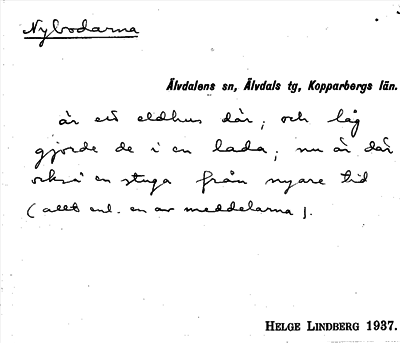 Nybodarna
Älvdalens sn, Älvdals tg, Kopparbergs län.
är ett eldhus där; och låg
gjorde de i en lada; nu är där
också en stuga från nyare tid
(allt enl. en av meddelarna).
HELGE LINDBERG 1937.